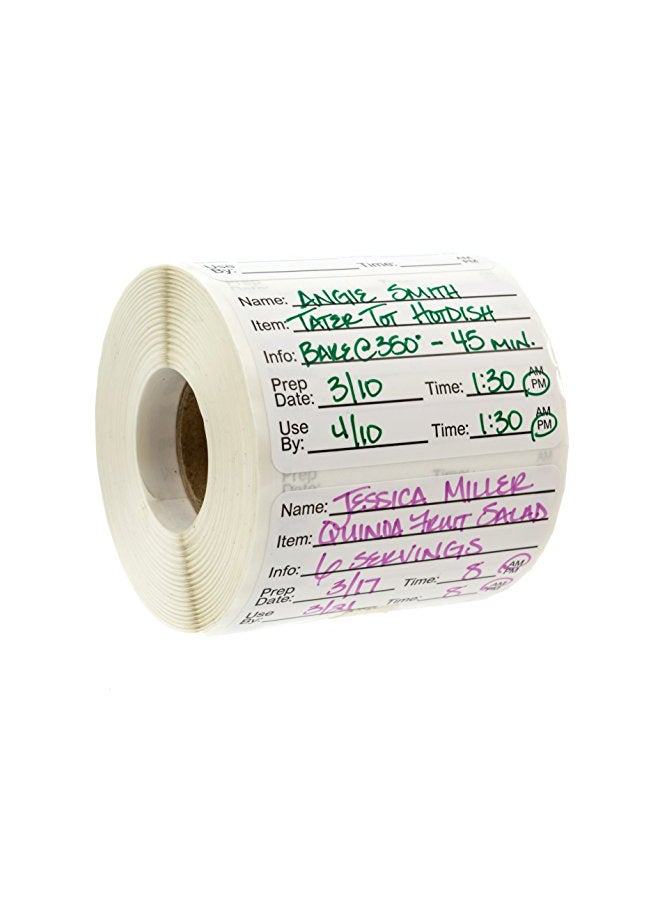 Use By: Time: AM PM
Name: ANGIE SMITH
Item: TATER TOT HOTDISH
Info: BAKE @ 350° - 45 MIN.
Prep Date: 3/10 Time: 1:30 AM PM
Use By: 4/10 Time: 1:30 AM PM
Name: JESSICA MILLER
Item: QUINOA FRUIT SALAD
Info: 6 SERVINGS
Prep Date: 3/17 Time: 8 AM PM
Use By: 3/21 Time: 8 AM PM